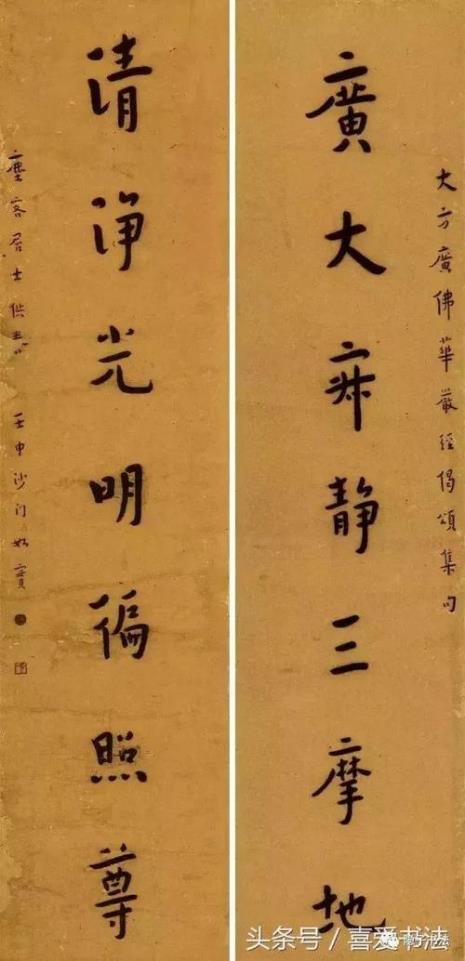 大方廣佛華嚴經偈頌集句
廣大寂静三摩地
清淨光明徧照尊
塵客居士供養 壬申沙门如實
头条号 / 喜爱书法